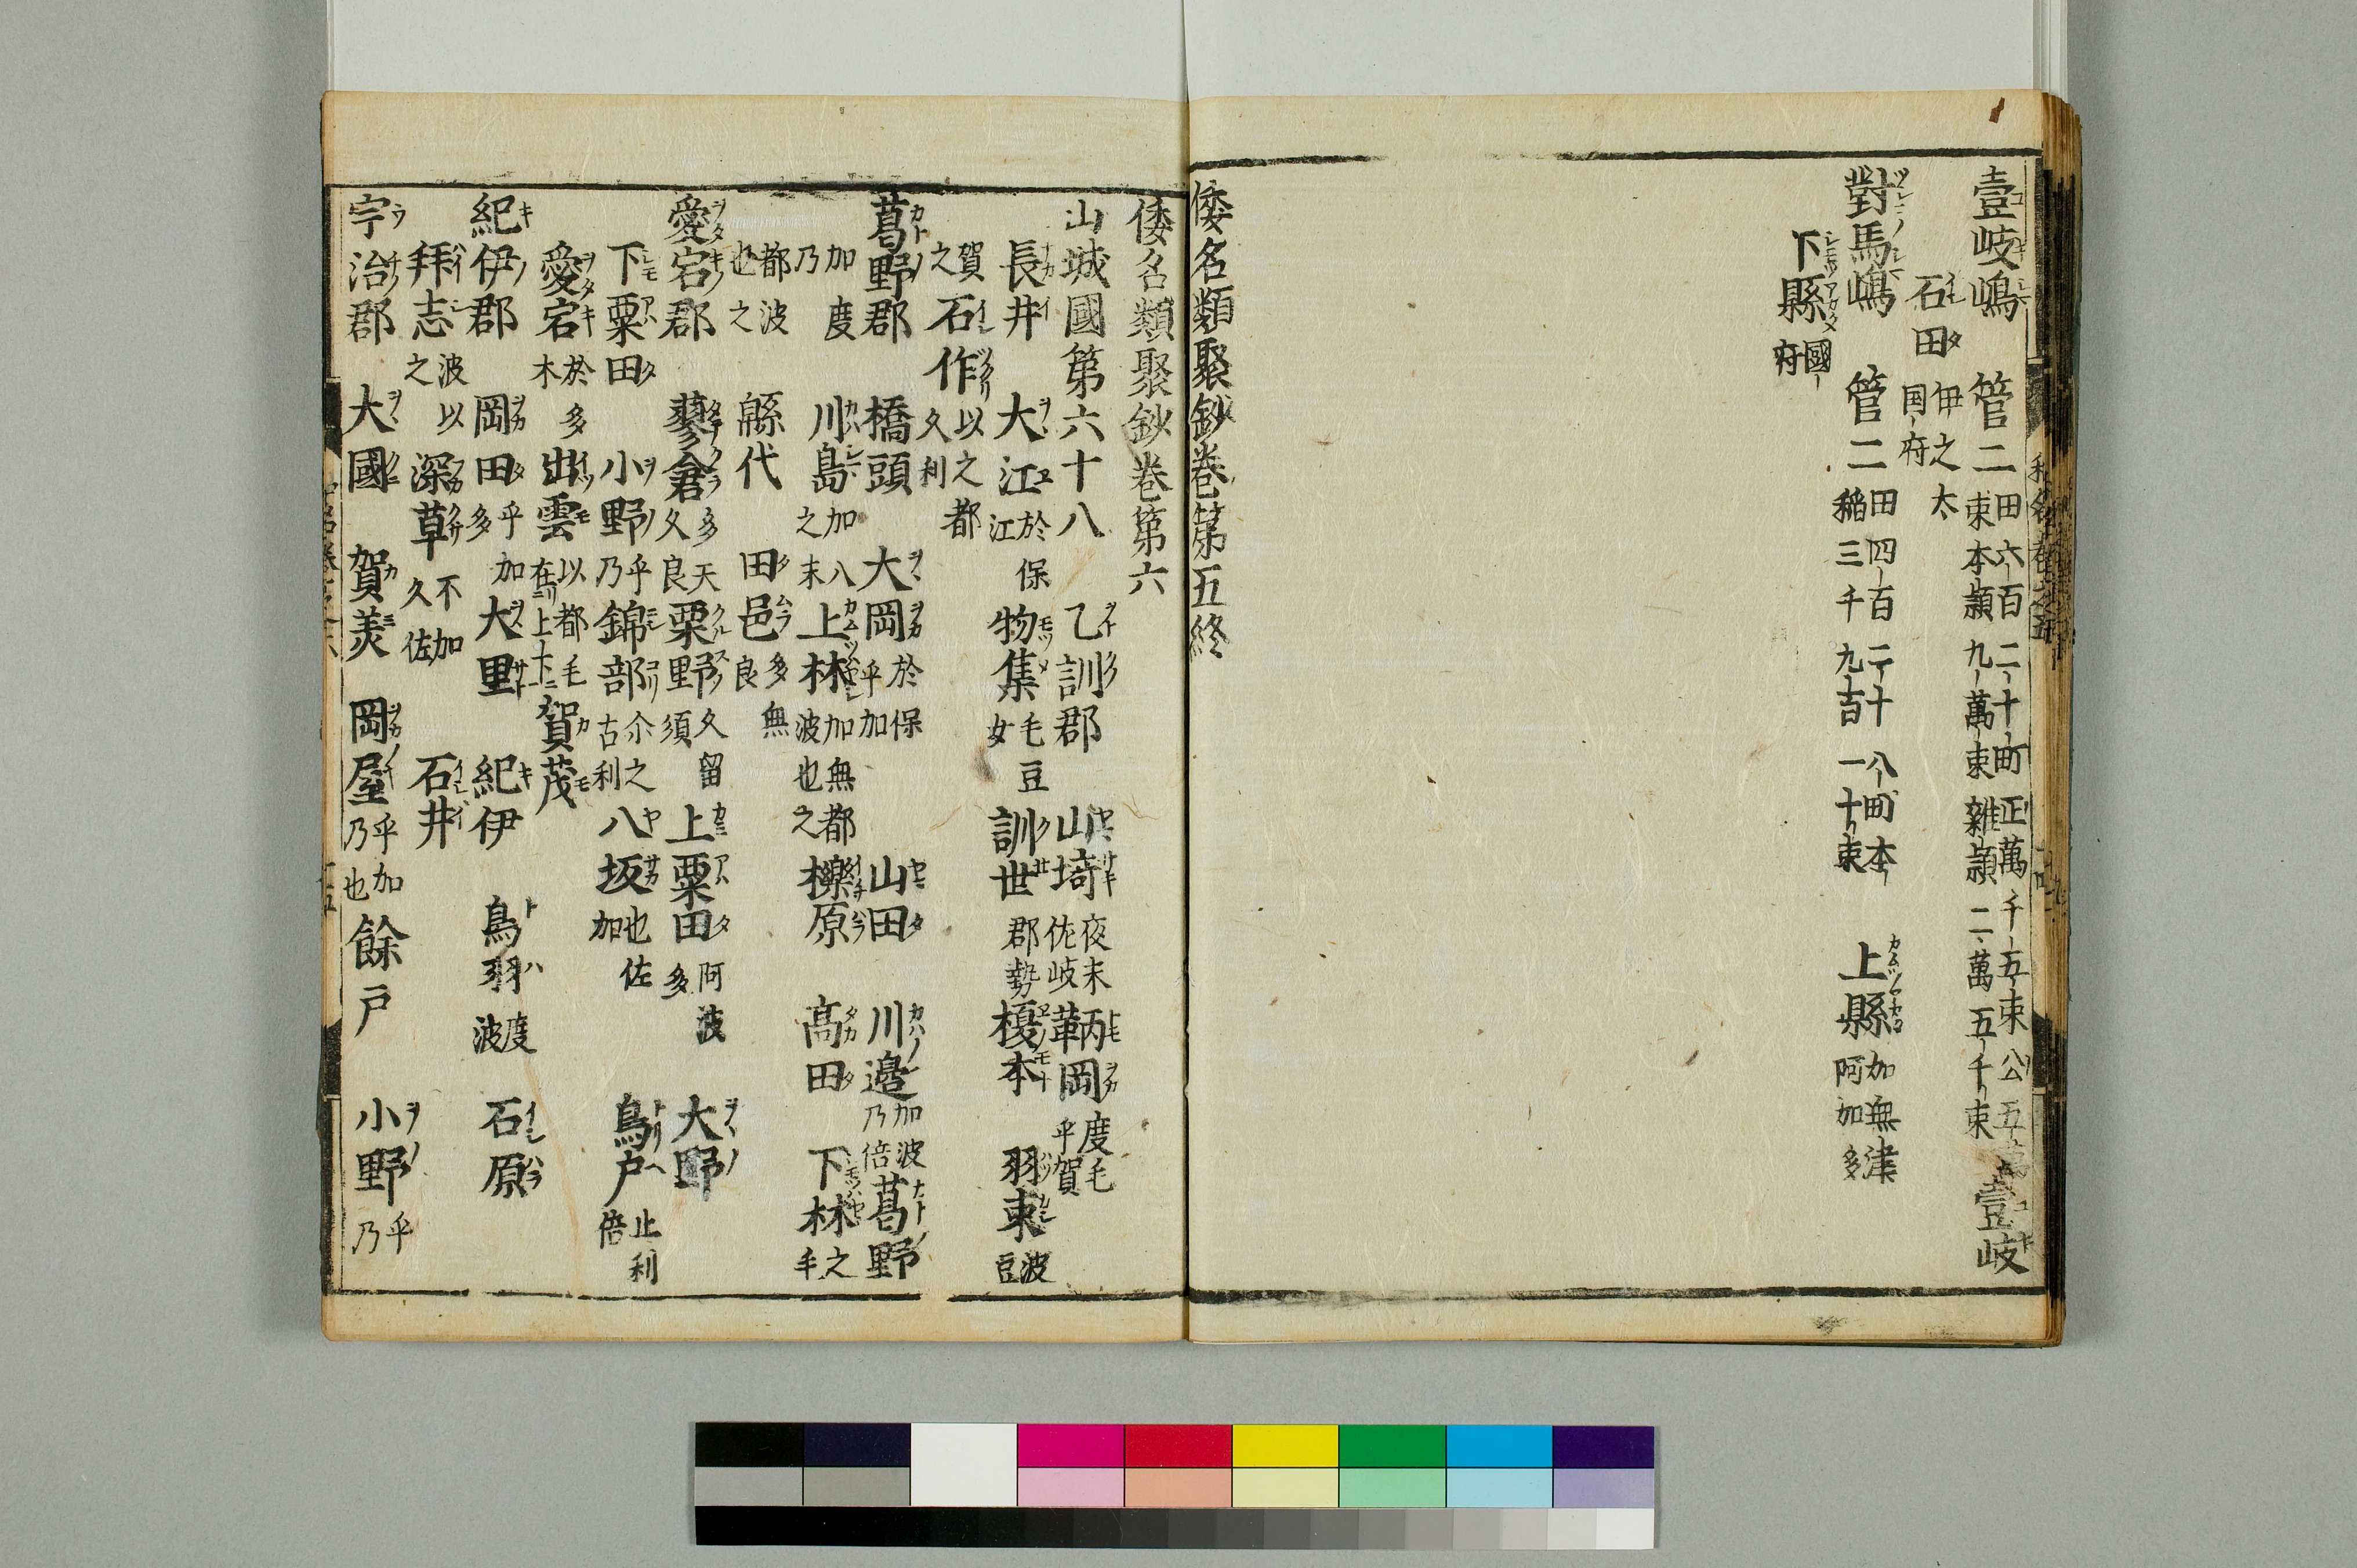 壹岐嶋 管二 田六百二十町正萬千五束公五萬 束本頴九萬束雜頴二萬五千束 壹岐
石田 伊之太 国府
對馬嶋 管二 田四百二十八町本 稲三千九百一十束 上縣 加無津 阿加多
下縣 國府
倭名類聚鈔卷第五終
倭名類聚鈔卷第六
山城國第六十八 乙訓郡 山埼 夜末 佐岐 鞆岡 度毛 乎賀
長井 大江 於保 江 物集 毛豆 女 訓世 郡勢 榎本 羽束 波 豆
賀 之 石作 以之都 久利
葛野郡 橋頭 大岡 於保 乎加 山田 川邉 加波 乃倍 葛野
加度 乃 川島 加八 之末 上林 加無都 波也之 櫟原 高田 下林 之 毛
都波 也之 緜代 田邑 多無 良
愛宕郡 蓼倉 多天 久良 栗野 久留 須 上粟田 阿波 多 大野
下粟田 小野 乎 乃 錦部 尒之 古利 八坂 也佐 加 鳥戸 止利 倍
愛宕 於多 木 出雲 以都毛 在上下 賀茂
紀伊郡 岡田 乎加 多 大里 紀伊 鳥羽 度 波 石原
拜志 波以 之 深草 不加 久佐 石井
宇治郡 大國 賀美 岡屋 乎加 乃也 餘戸 小野 乎 乃